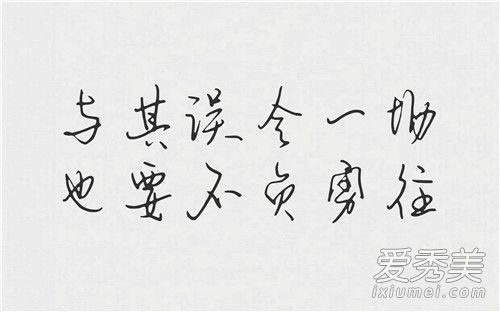 与其误会一场
也要不负勇往
爱秀美
ixiumei.com